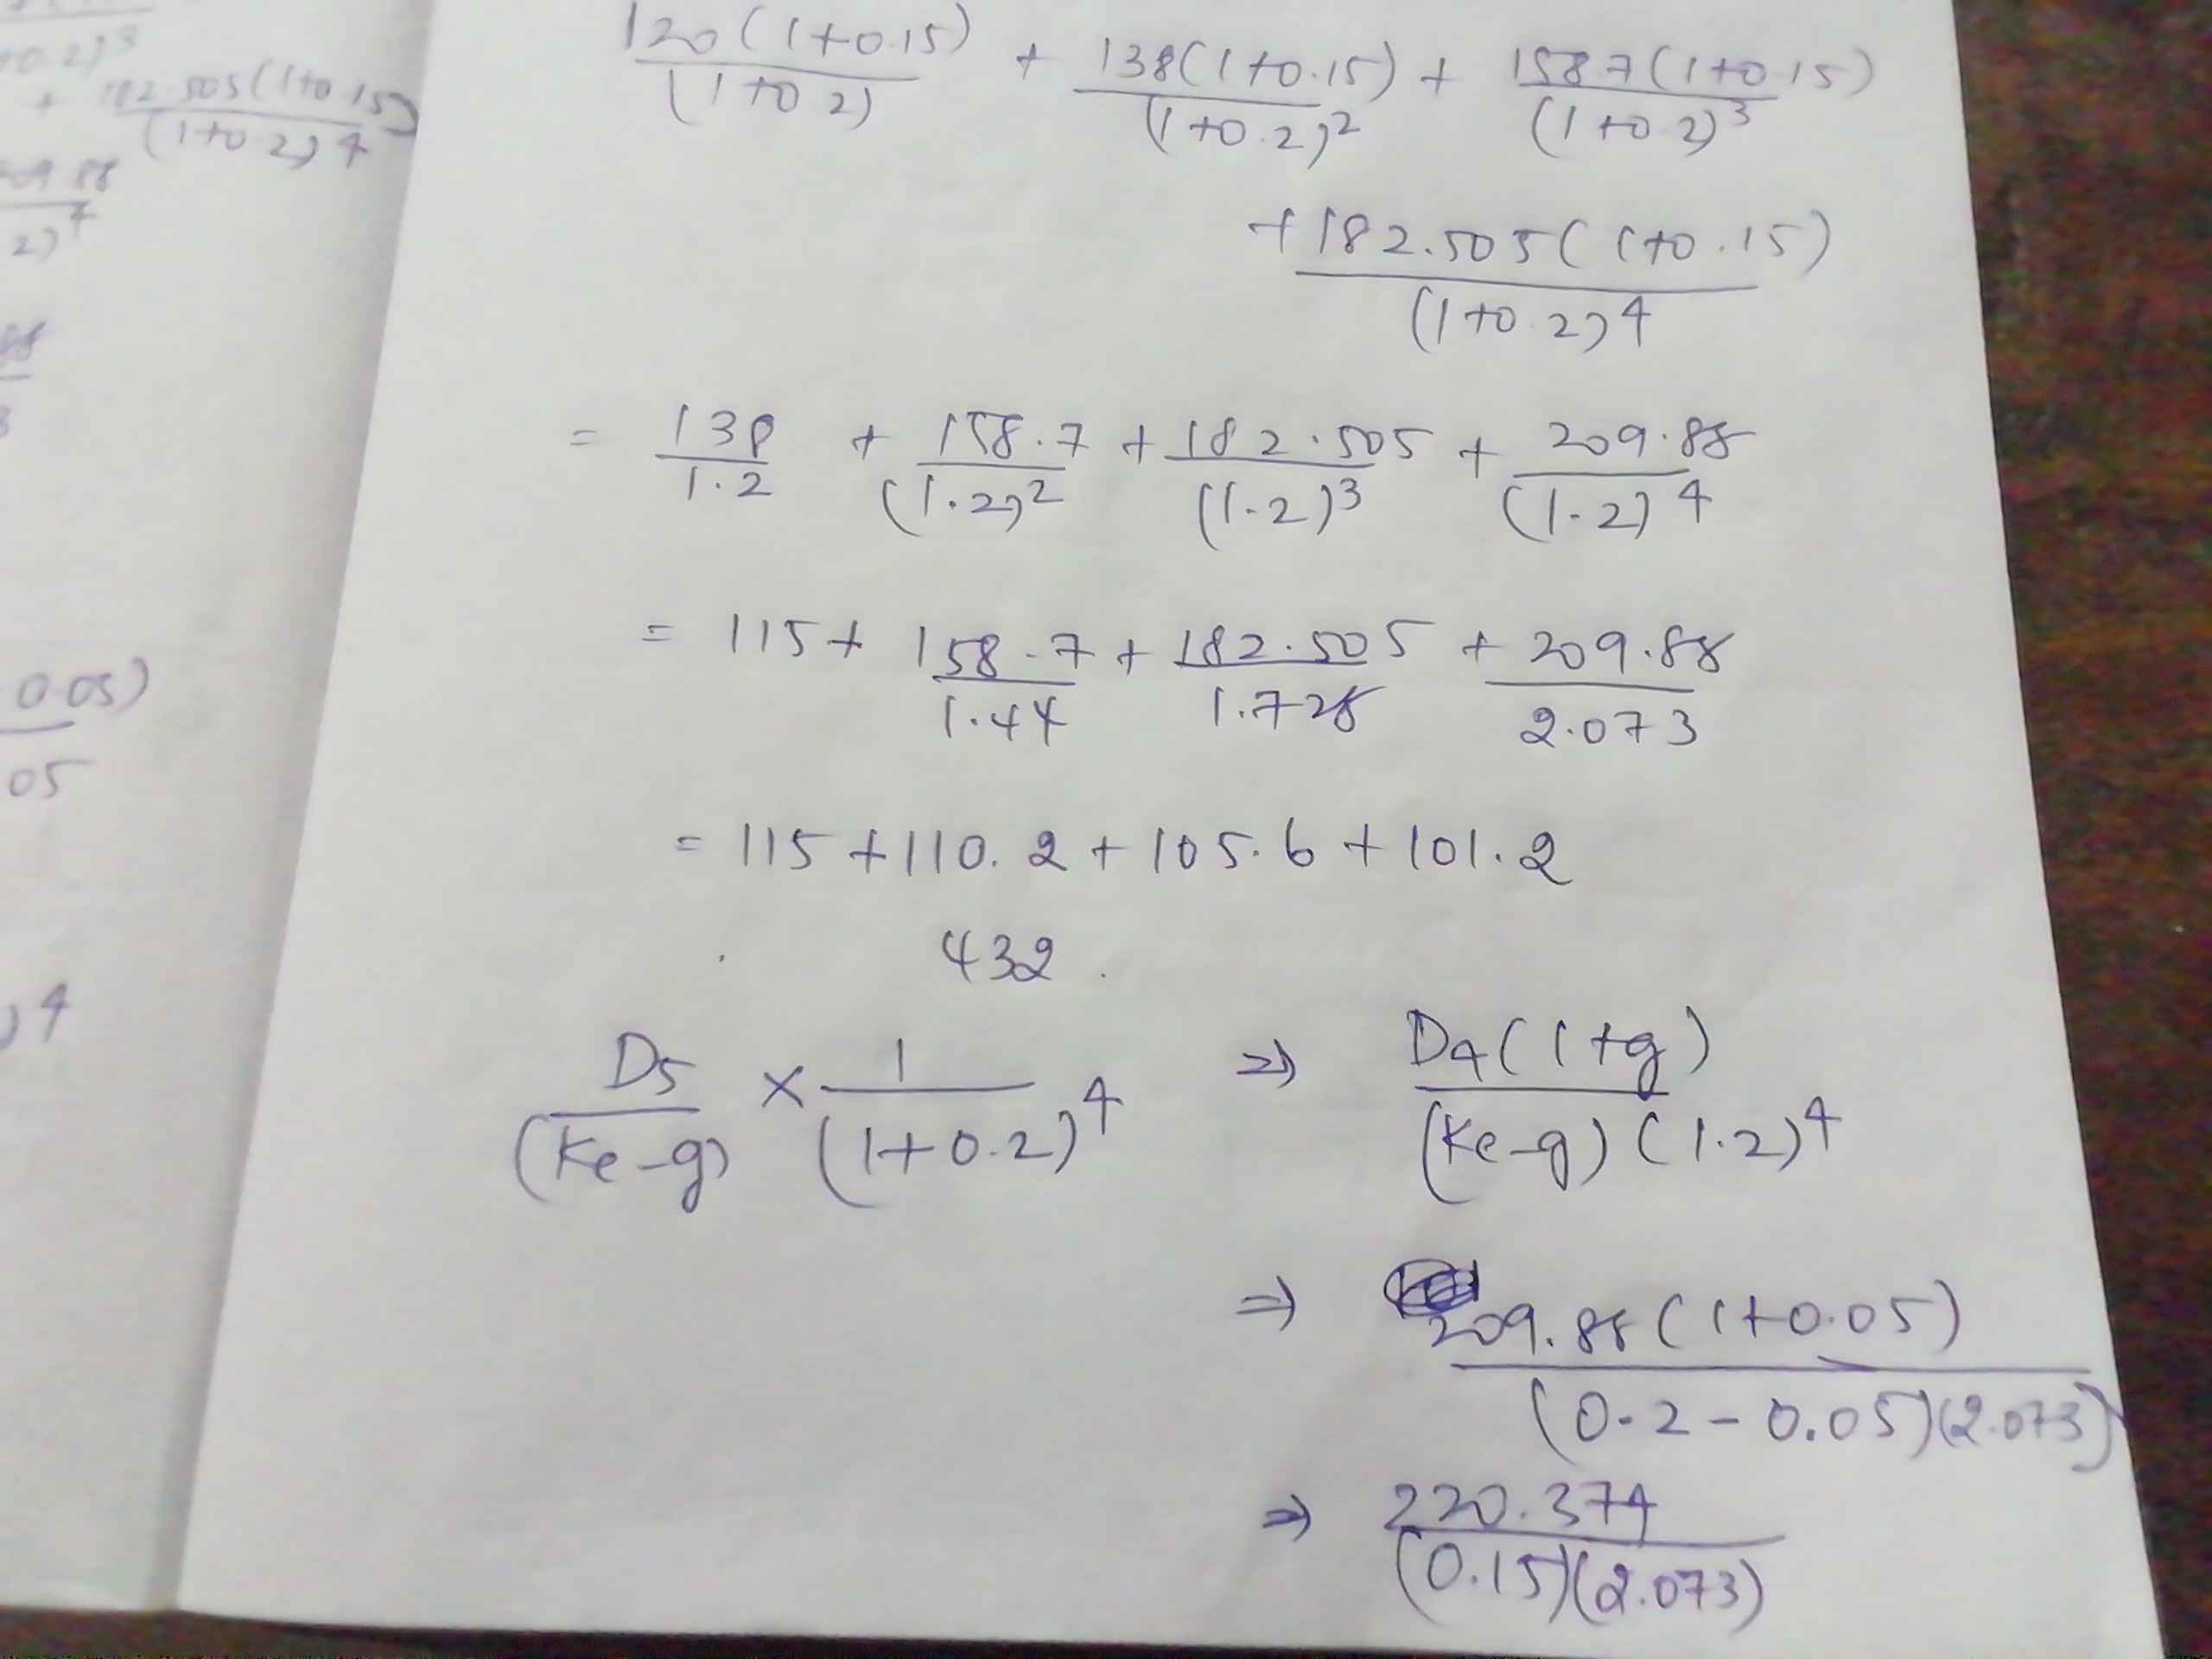 +0.2)3
+ 182.505(1+0.15)
(1+0.2)4
209.88
2)4
88
0.05)
05
)4
120(1+0.15) + 138(1+0.15) + 158.7(1+0.15)
(1+0.2) (1+0.2)2 (1+0.2)3
+ 182.505(1+0.15)
(1+0.2)4
= 138 + 158.7 + 182.505 + 209.88
1.2 (1.2)2 (1.2)3 (1.2)4
= 115 + 158.7 + 182.505 + 209.88
1.44 1.728 2.073
= 115 + 110.2 + 105.6 + 101.2
432.
D5 × 1 ⇒ D4(1+g)
(Ke-g) (1+0.2)4 (Ke-g)(1.2)4
⇒ 209.88(1+0.05)
(0.2-0.05)(2.073)
⇒ 220.374
(0.15)(2.073)